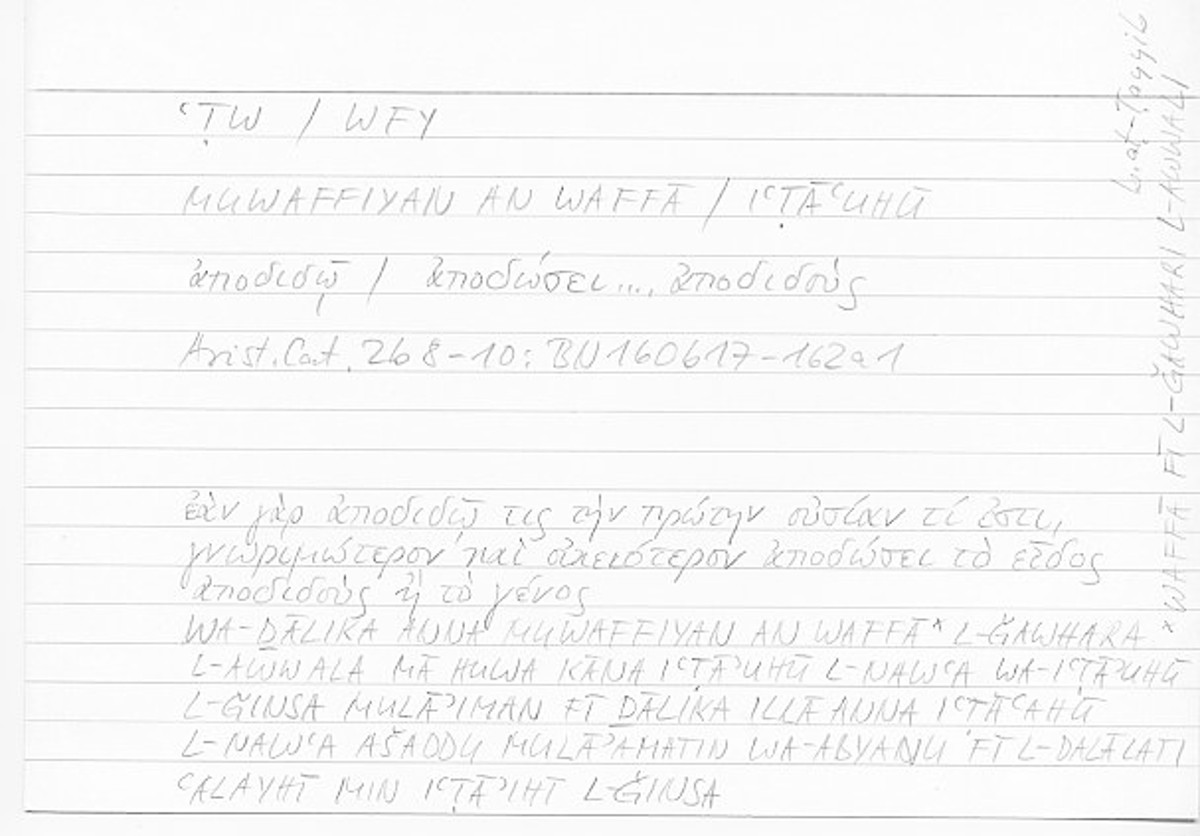 ʿṬW / WFY
MUWAFFIYAN AN WAFFĀ / IʿṬĀʿUHŪ
ἀποδιδῷ / ἀποδώσει..., ἀποδιδούς
Arist. Cat. 2b8-10: BN160b17-162a1
ἐὰν γὰρ ἀποδιδῷ τις τὴν πρώτην οὐσίαν τί ἐστι,
γνωριμώτερον καὶ οἰκειότερον ἀποδώσει τὸ εἶδος
ἀποδιδοὺς ἢ τὸ γένος
WA-ḎĀLIKA ANNA MUWAFFIYAN AN WAFFĀˣ L-ǦAWHARA
L-AWWALA MĀ HUWA KĀNA IʿṬĀʾUHŪ L-NAWʿA WA-IʿṬĀʾUHŪ
L-ǦINSA MULĀʾIMAN FĪ ḎĀLIKA ILLĀ ANNA IʿṬĀʿAHŪ
L-NAWʿA AŠADDU MULĀʾAMATIN WA-ABYANU FĪ L-DALĀLATI
ʿALAYHĪ MIN IʿṬĀʾIHĪ L-ǦINSA
ˣ WAFFĀ FĪ L-ǦAWHARI L-AWWALI
b. aṭ-Ṭayyib